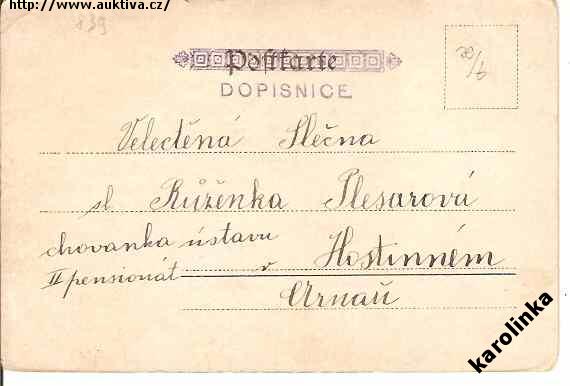 http://www.auktiva.cz/
839
Postkarte
DOPISNICE
Velectěná Slečna
sl. Růženka Plesarová
chovanka ústavu
v Hostinném
II pensionát
Arnau
karolinka